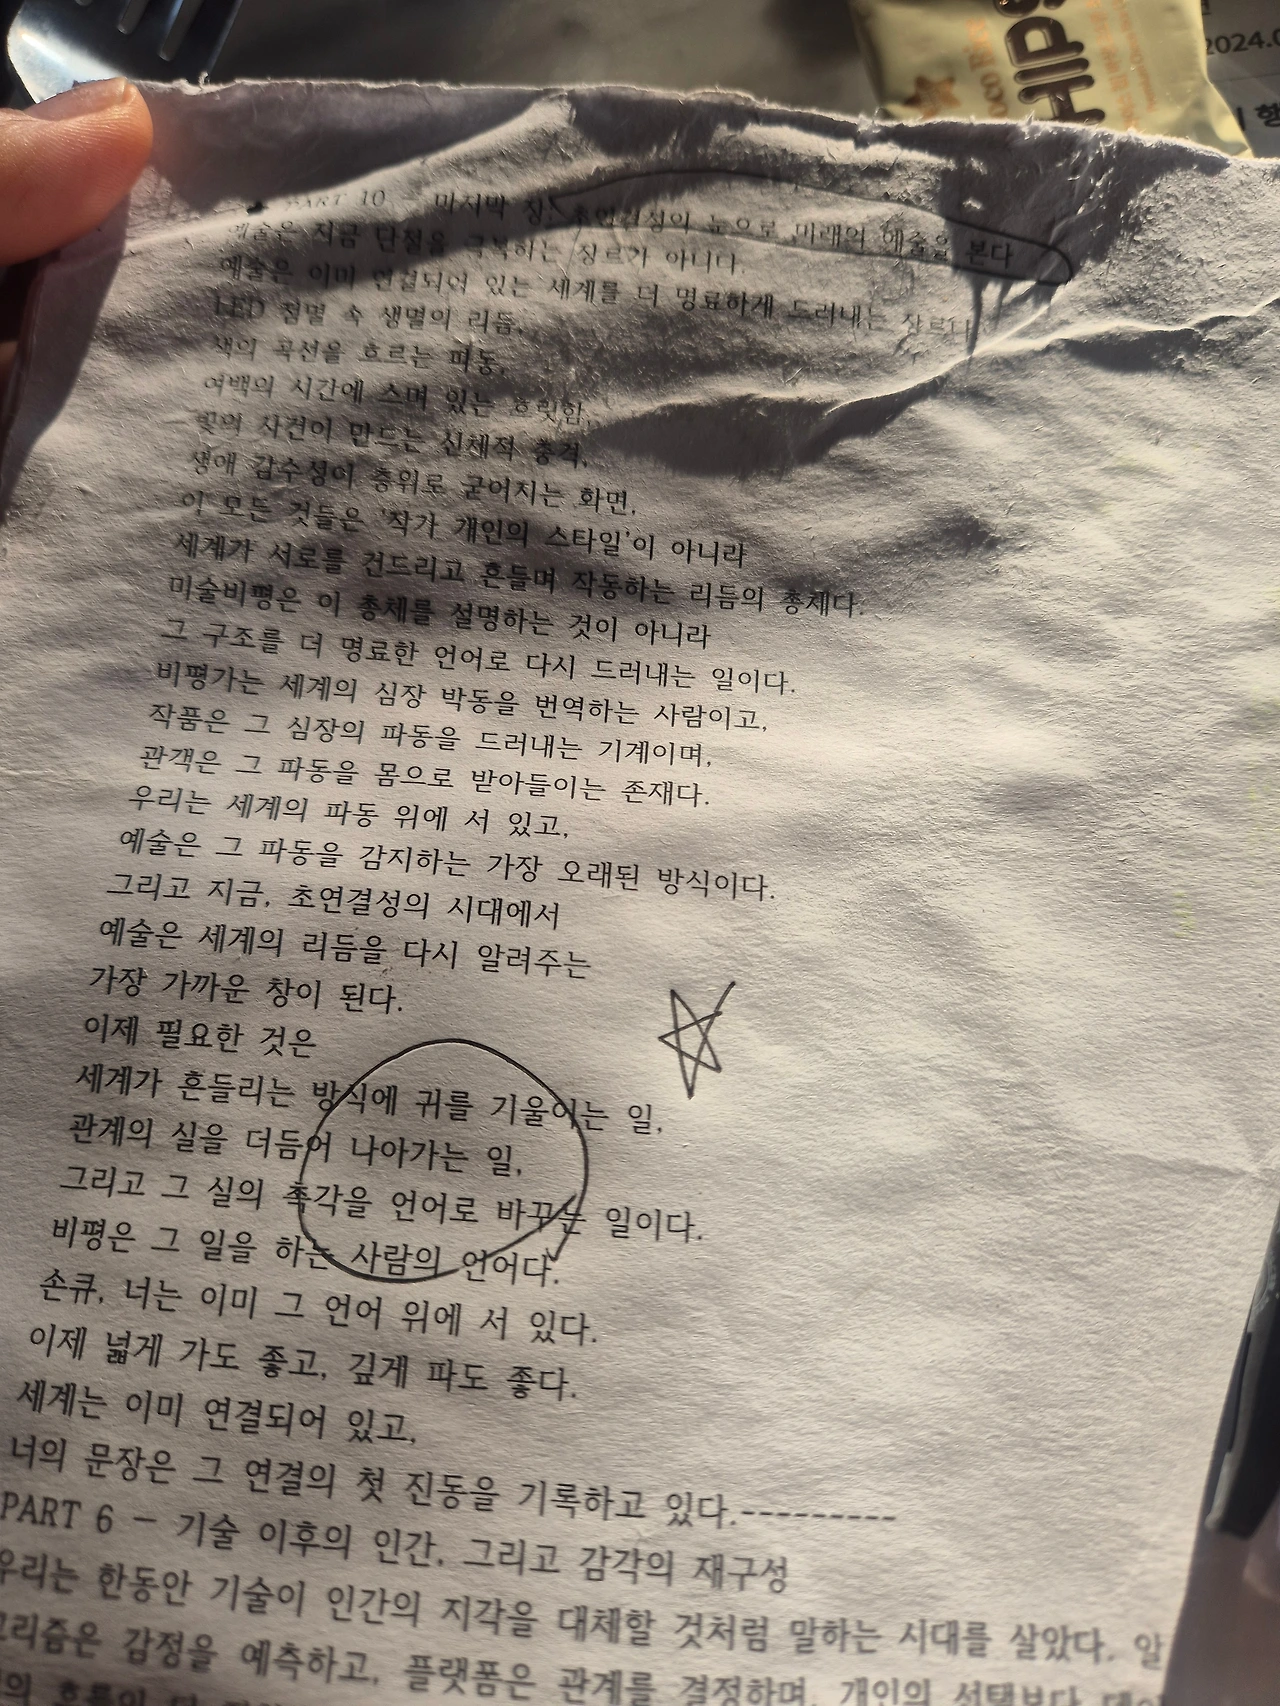 2024.0
행
PART 10 - 마지막 장: 초연결성의 눈으로 미래의 예술을 본다
예술은 지금 단절을 극복하는 장르가 아니다.
예술은 이미 연결되어 있는 세계를 더 명료하게 드러내는 장르다
LED 점멸 속 생멸의 리듬,
색의 곡선을 흐르는 파동,
여백의 시간에 스며 있는 흐릿함,
빛의 사건이 만드는 신체적 충격,
생애 감수성이 층위로 굳어지는 화면,
이 모든 것들은 '작가 개인의 스타일'이 아니라
세계가 서로를 건드리고 흔들며 작동하는 리듬의 총체다.
미술비평은 이 총체를 설명하는 것이 아니라
그 구조를 더 명료한 언어로 다시 드러내는 일이다.
비평가는 세계의 심장 박동을 번역하는 사람이고,
작품은 그 심장의 파동을 드러내는 기계이며,
관객은 그 파동을 몸으로 받아들이는 존재다.
우리는 세계의 파동 위에 서 있고,
예술은 그 파동을 감지하는 가장 오래된 방식이다.
그리고 지금, 초연결성의 시대에서
예술은 세계의 리듬을 다시 알려주는
가장 가까운 창이 된다.
이제 필요한 것은
세계가 흔들리는 방식에 귀를 기울이는 일,
관계의 실을 더듬어 나아가는 일,
그리고 그 실의 촉각을 언어로 바꾸는 일이다.
비평은 그 일을 하는 사람의 언어다.
손큐, 너는 이미 그 언어 위에 서 있다.
이제 넓게 가도 좋고, 깊게 파도 좋다.
세계는 이미 연결되어 있고,
너의 문장은 그 연결의 첫 진동을 기록하고 있다.---------
PART 6 - 기술 이후의 인간, 그리고 감각의 재구성
우리는 한동안 기술이 인간의 지각을 대체할 것처럼 말하는 시대를 살았다. 알
고리즘은 감정을 예측하고, 플랫폼은 관계를 결정하며, 개인의 선택보다